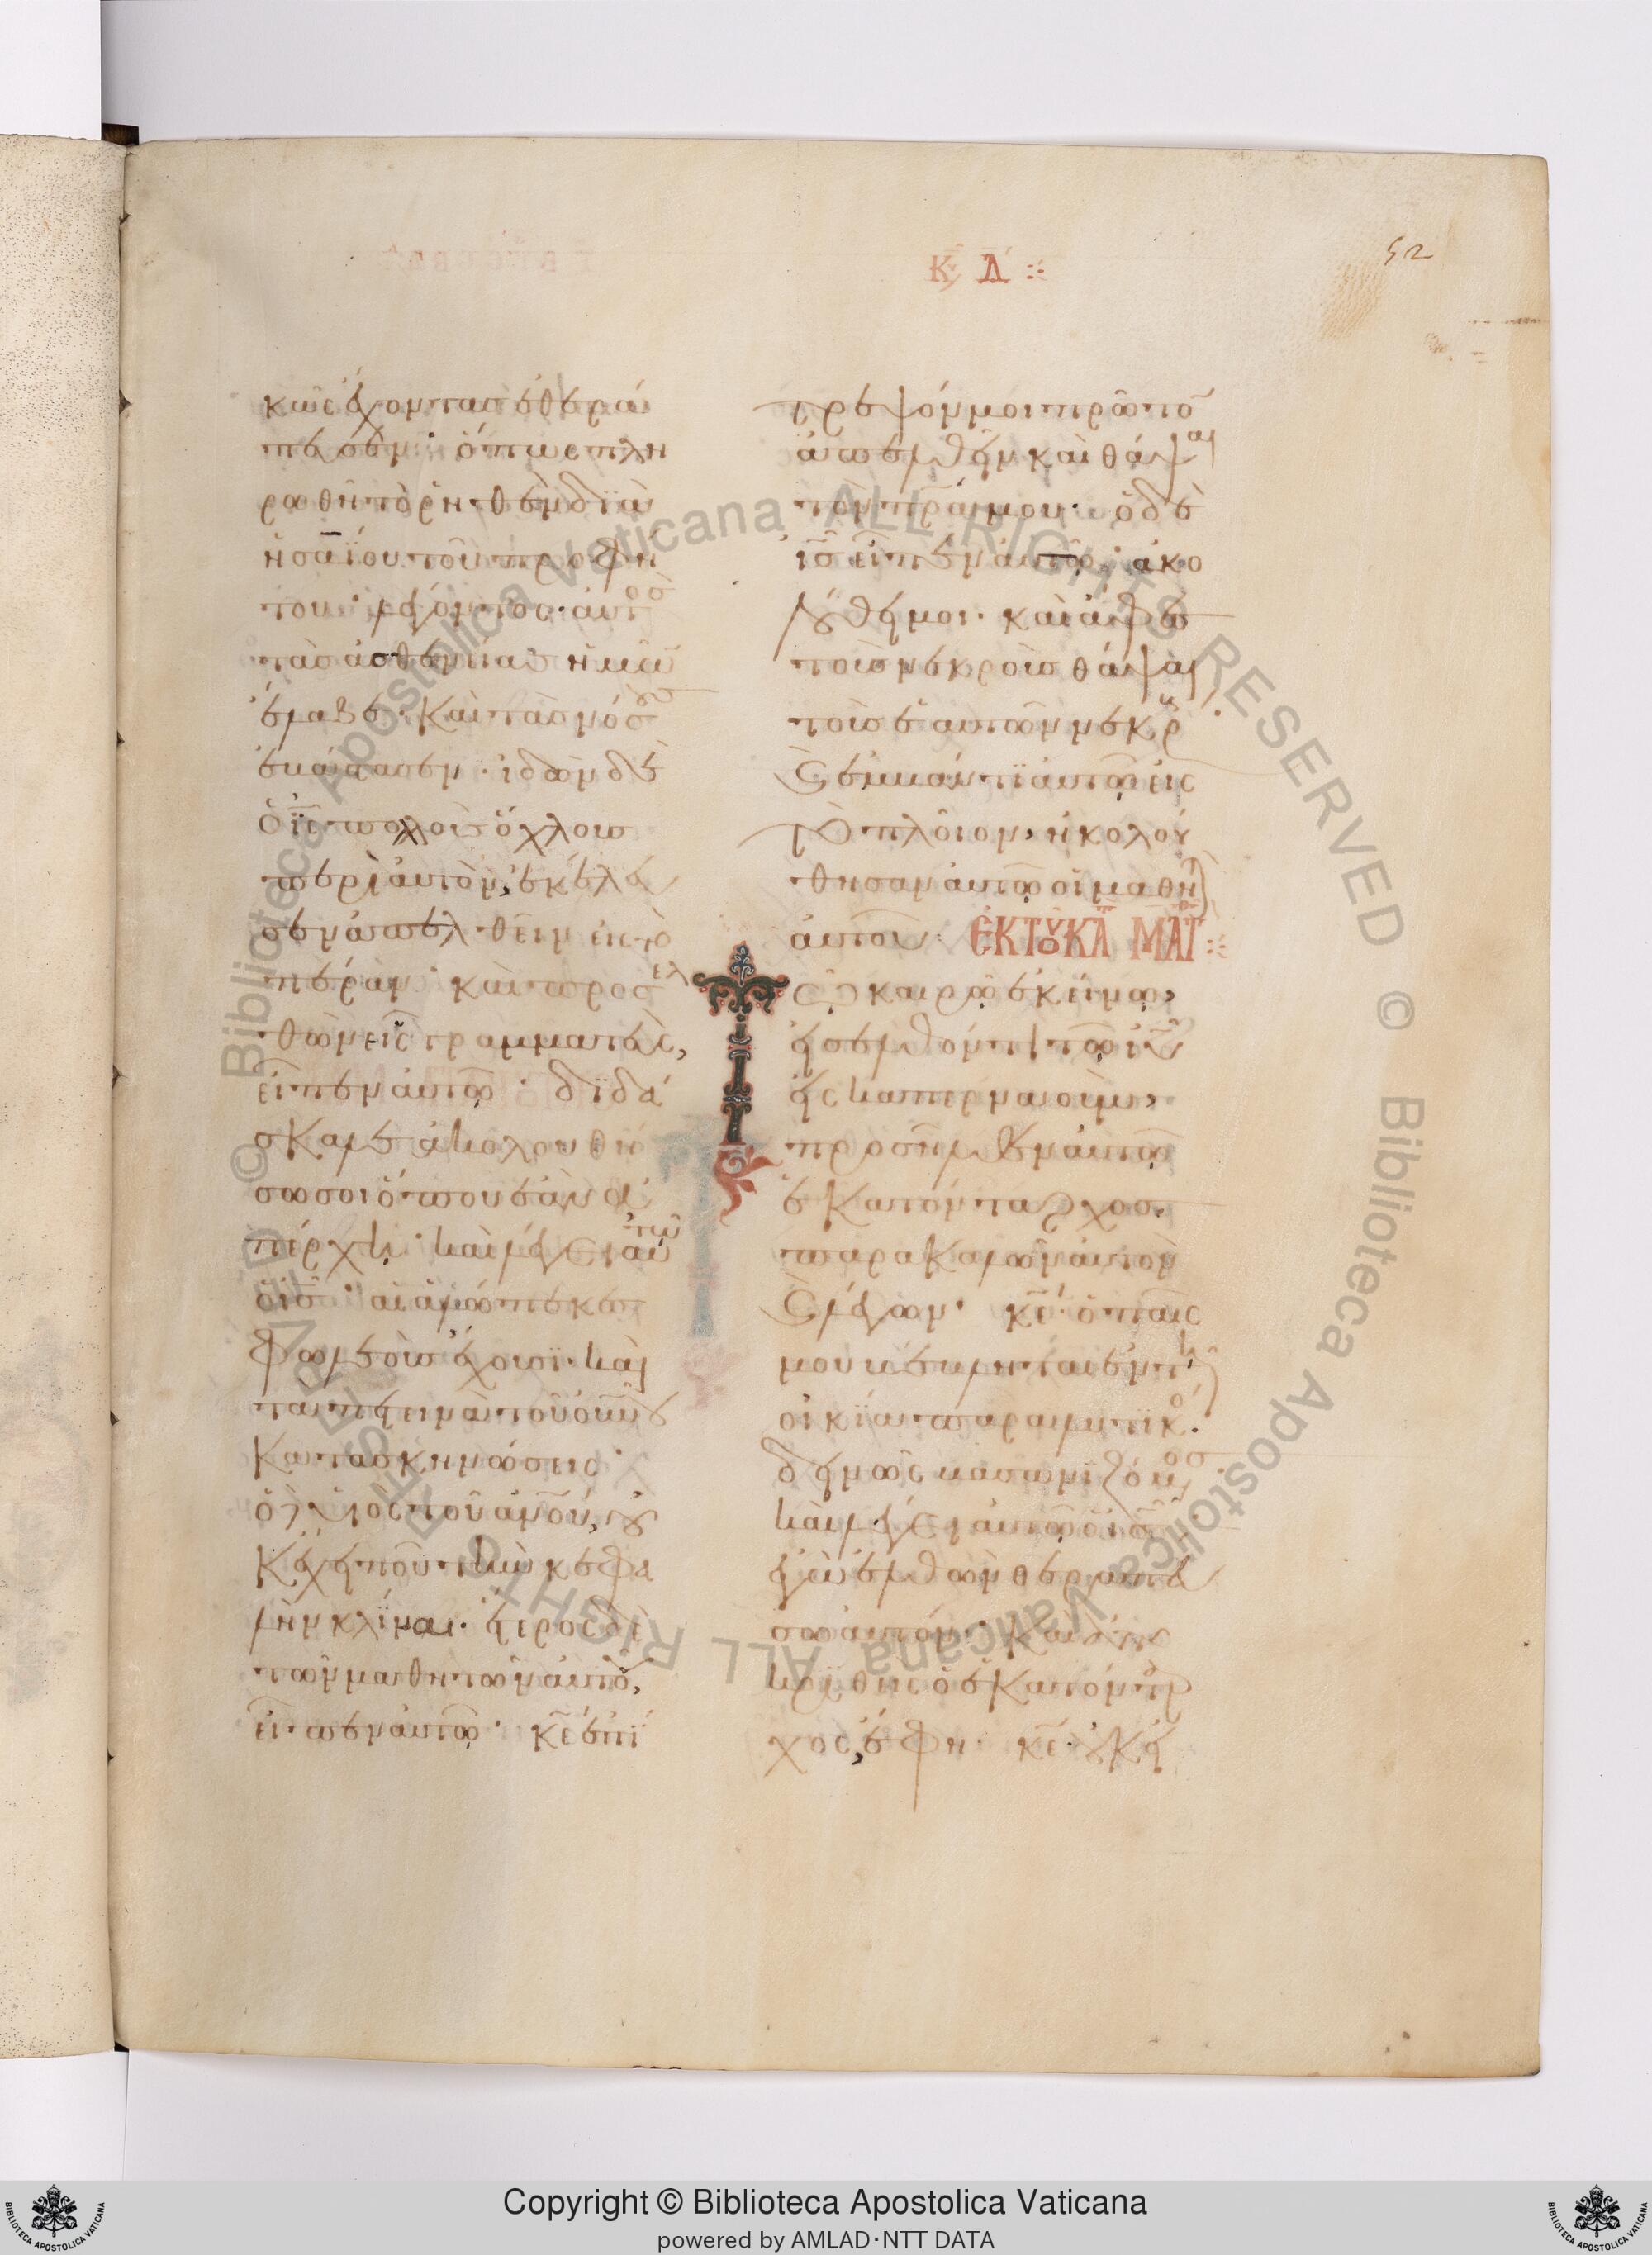 52
Κυ Δ
κῶς ἔχοντας ἐθερά
πευσεν· ὅπως πλη
ρωθῆ τὸ ρηθὲν διὰ
ἠσαΐου τοῦ προφή
του λέγοντος· αὐτὸς
τὰς ἀσθενείας ἡμῶν
ἔλαβε· καὶ τὰς νόσους
ἐβάστασεν· ἰδὼν δὲ
ὁ ις πολλοὺς ὄχλους
περὶ αὐτὸν, ἐκέλευ
σεν ἀπελθεῖν εἰς τὸ
πέραν· καὶ προσελ
θὼν εἷς γραμματεὺς,
εἶπεν αὐτῶ· διδά
σκαλε ἀκολουθή
σω σοι ὅπου ἐὰν ἀ
πέρχη· καὶ λέγει αὐτῶ
ὁ ις· αἱ ἀλώπεκες
φωλεοὺς ἔχουσι· καὶ
τὰ πετεινὰ τοῦ ουνου
κατασκηνώσεις·
ὁ δὲ υἱος τοῦ ανου, οὐ
κ ἔχει ποῦ τὴν κεφα
λὴν κλίναι· ἕτερος δὲ
τῶν μαθητῶν αὐτοῦ,
εἶπεν αὐτῶ· κε ἐπί
τρεψόν μοι πρῶτον
ἀπελθεῖν καὶ θάψαι
τὸν πρα μου· ὁ δὲ
ις εἶπεν αὐτῶ· ἀκο
λούθει μοι· καὶ ἄφες
τοὺς νεκροὺς θάψαι
τοὺς ἑαυτῶν νεκρούς·
Καὶ ἐμβάντι αὐτῶ εἰς
τὸ πλοῖον, ἠκολού
θησαν αὐτῶ οἱ μαθηταὶ
αὐτοῦ· ΕΚ ΤΟΥ ΚΑΤΑ ΜΑΤ
Τῶ καιρῶ ἐκείνω,
εἰσελθόντι τῶ ιυ
εἰς καπερναούμ,
προσῆλθεν αὐτῶ
ἑκατόνταρχος
παρακαλῶν αὐτὸν
καὶ λέγων· κε ὁ παῖς
μου βέβληται ἐν τῆ
οἰκία παραλυτικὸς·
δεινῶς βασανιζόμενος·
καὶ λέγει αὐτῶ ὁ ις·
ἐγὼ ἐλθὼν θεραπεύ
σω αὐτόν· καὶ ἀπο
κριθεὶς ὁ ἑκατόνταρ
χος, ἔφη· κε οὐκ εἰ